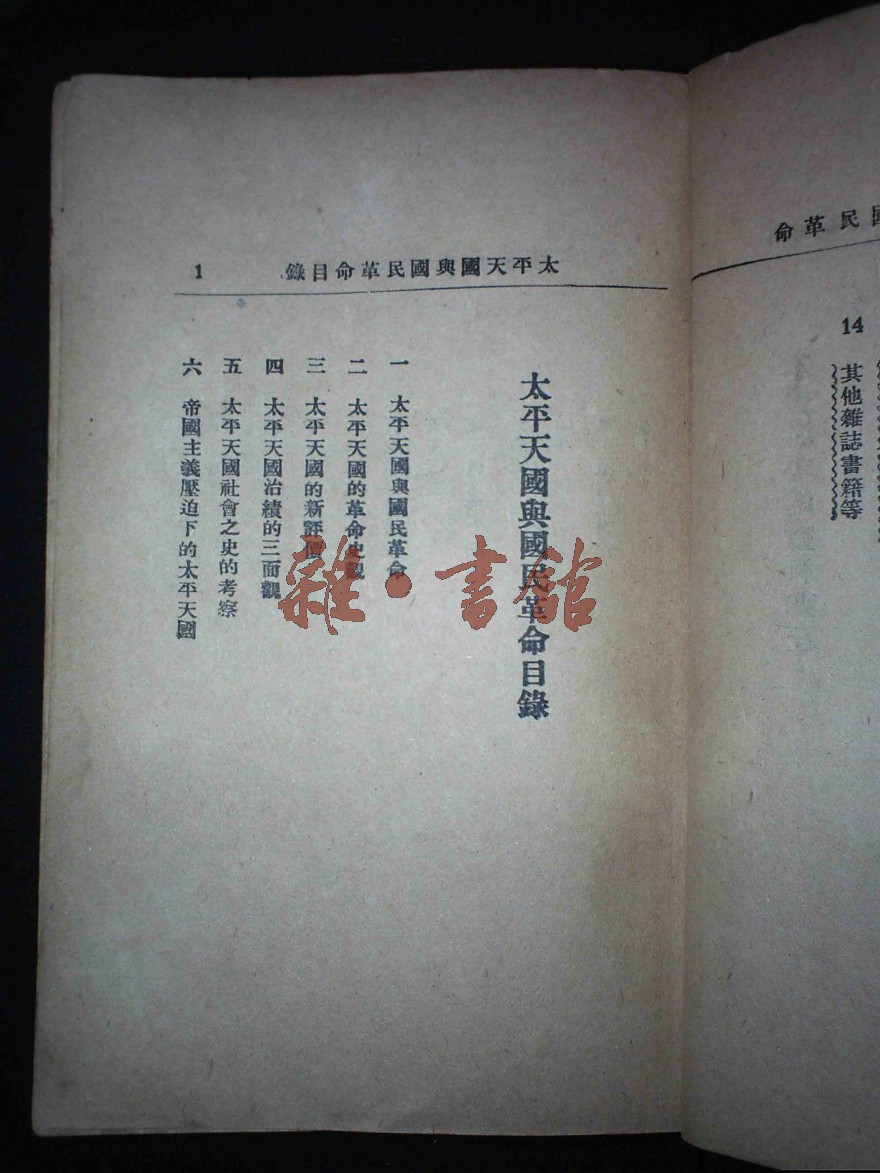 國民革命
14
其他雜誌書籍等
太平天國與國民革命目錄
1
太平天國與國民革命目錄
一 太平天國與國民革命
二 太平天國的革命史觀
三 太平天國的新評價
四 太平天國治績的三面觀
五 太平天國社會之史的考察
六 帝國主義壓迫下的太平天國
雜·書舘